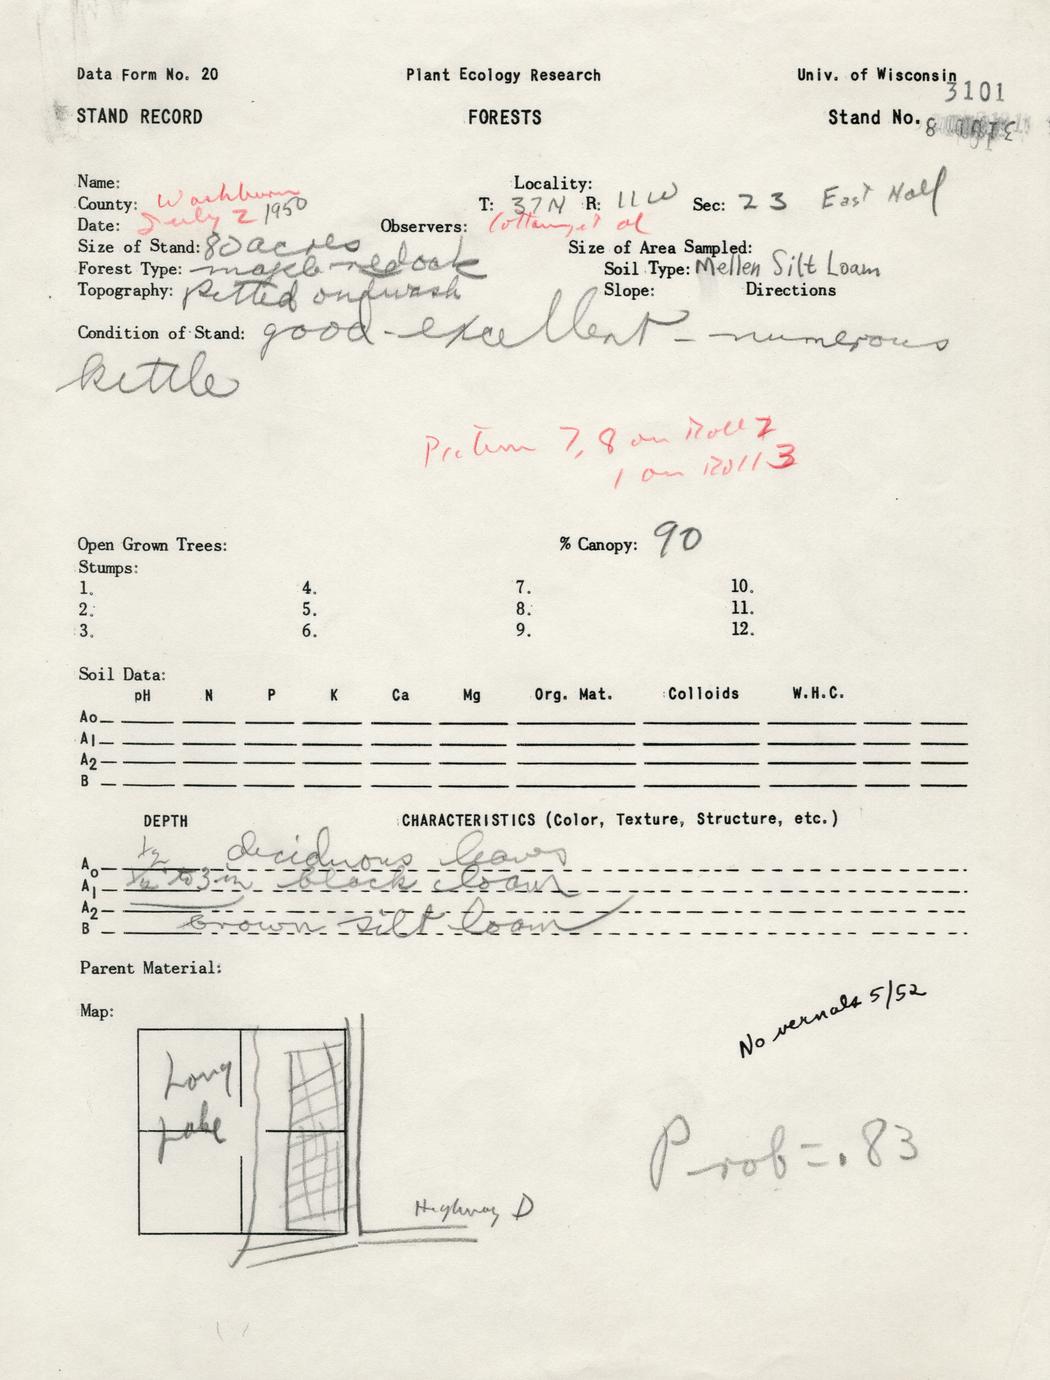 Data Form No. 20 Plant Ecology Research Univ. of Wisconsin
3101
STAND RECORD FORESTS Stand No. 8
Name: Locality:
County: Washburn T: 37N R: 11W Sec: 23 East Half
Date: July 2 1950 Observers: Cottam, et al
Size of Stand: 80 acres Size of Area Sampled:
Forest Type: maple-red oak Soil Type: Mellen Silt Loam
Topography: pitted outwash Slope: Directions
Condition of Stand: good-excellent - numerous
kettle
Picture 7, 8 on Roll 2
1 on Roll 3
Open Grown Trees: % Canopy: 90
Stumps:
1. 4. 7. 10.
2. 5. 8. 11.
3. 6. 9. 12.
Soil Data:
pH N P K Ca Mg Org. Mat. Colloids W.H.C.
Ao
A1
A2
B
DEPTH CHARACTERISTICS (Color, Texture, Structure, etc.)
Ao 1/2 deciduous leaves
A1 1/2 to 3 in black loam
A2
B brown silt loam
Parent Material:
Map:
No vernals 5/52
Long
Lake
Prob = .83
Highway D